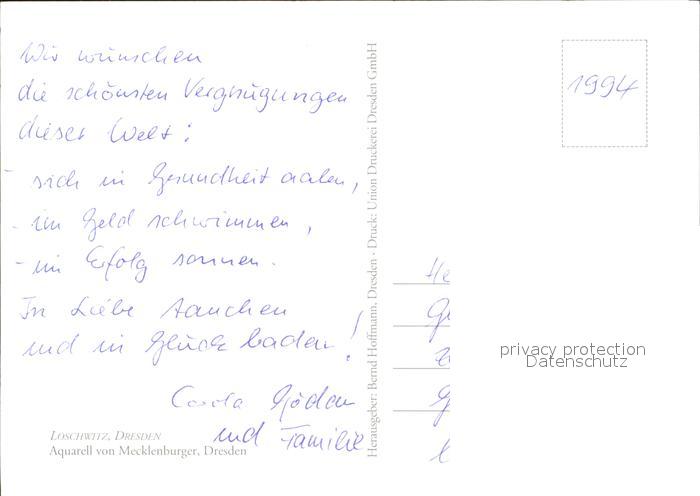 Wir wünschen
die schönsten Vergnügungen
dieser Welt:
- sich in Gesundheit aalen,
- im Geld schwimmen,
- im Erfolg sonnen.
In Liebe tauchen
und in Glück baden!
und Familie
LOSCHWITZ, DRESDEN
Aquarell von Mecklenburger, Dresden
Herausgeber: Bernd Hoffmann, Dresden · Druck: Union Druckerei Dresden GmbH
1994
He
privacy protection
Datenschutz